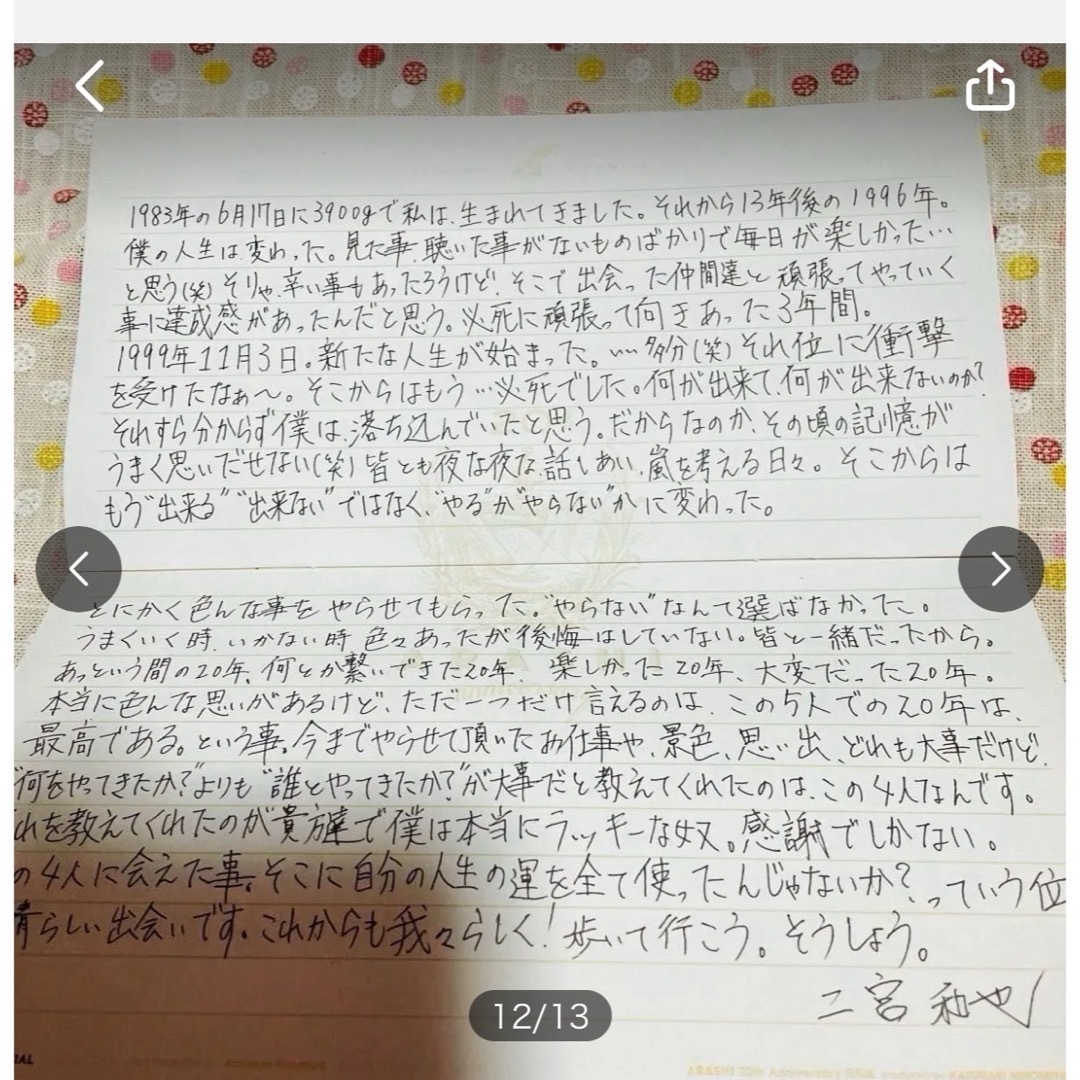 1983年の6月17日に3900gで私は、生まれてきました。それから13年後の1996年。
僕の人生は、変わった。見た事、聴いた事がないものばかりで毎日が楽しかった…
と思う(笑)そりゃ、辛い事もあったろうけど、そこで出会った仲間達と頑張ってやっていく
事に達成感があったんだと思う。必死に頑張って向きあった3年間。
1999年11月3日。新たな人生が始まった。……多分(笑)それ位に衝撃
を受けたなぁ〜。そこからはもう…必死でした。何が出来て、何が出来ないのか?
それすら分からず僕は、落ち込んでいたと思う。だからなのか、その頃の記憶が
うまく思いだせない(笑)皆とも夜な夜な、話しあい、嵐を考える日々。そこからは
もう"出来る""出来ない"ではなく、"やる"か"やらない"かに変わった。
とにかく色んな事をやらせてもらった。"やらない"なんて選ばなかった。
うまくいく時、いかない時、色々あったが後悔はしていない。皆と一緒だったから。
あっという間の20年、何とか繋いできた20年、楽しかった20年、大変だった20年。
本当に色んな思いがあるけど、ただ一つだけ言えるのは、この5人での20年は、
最高である。という事。今までやらせて頂いたお仕事や、景色、思い出、どれも大事だけど、
"何をやってきたか?"よりも"誰とやってきたか?"が大事だと教えてくれたのは、この4人なんです。
れを教えてくれたのが貴方達で僕は本当にラッキーな奴。感謝でしかない。
の4人に会えた事。そこに自分の人生の運を全て使ったんじゃないか?っていう位
晴らしい出会いです。これからも我々らしく!歩いて行こう。そうしよう。
二宮和也
12/13
ARASHI 20th Anniversary